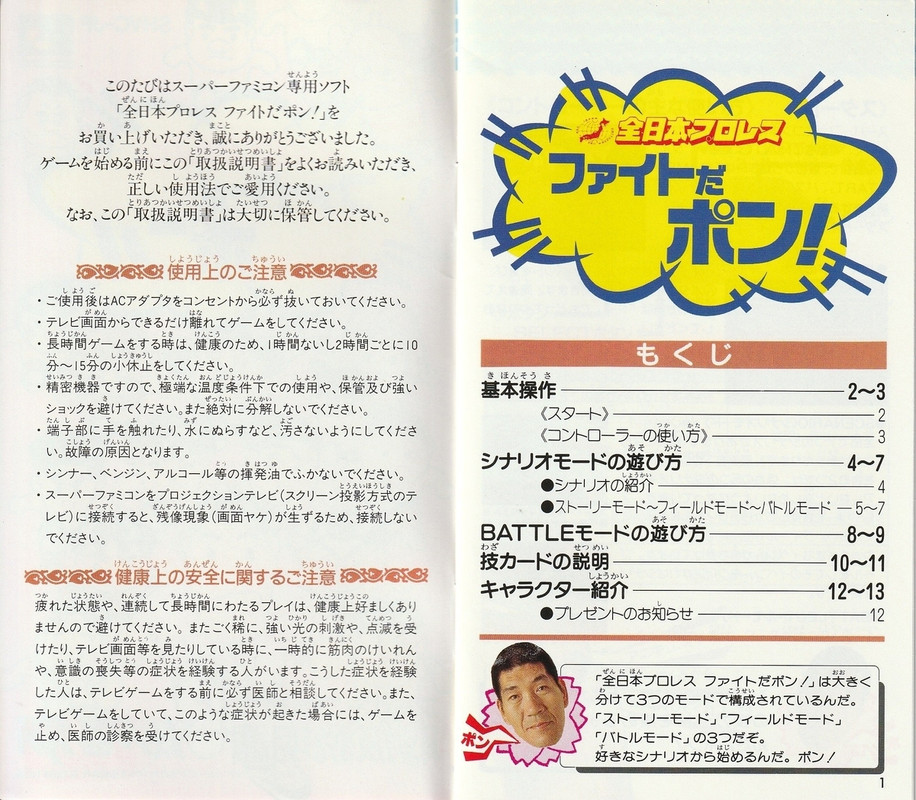 このたびはスーパーファミコン専用ソフト
「全日本プロレス ファイトだポン!」を
お買い上げいただき、誠にありがとうございました。
ゲームを始める前にこの「取扱説明書」をよくお読みいただき、
正しい使用法でご愛用ください。
なお、この「取扱説明書」は大切に保管してください。
使用上のご注意
・ご使用後はACアダプタをコンセントから必ず抜いておいてください。
・テレビ画面からできるだけ離れてゲームをしてください。
・長時間ゲームをする時は、健康のため、1時間ないし2時間ごとに10
分〜15分の小休止をしてください。
・精密機器ですので、極端な温度条件下での使用や、保管及び強い
ショックを避けてください。また絶対に分解しないでください。
・端子部に手を触れたり、水にぬらすなど、汚さないようにしてくださ
い。故障の原因となります。
・シンナー、ベンジン、アルコール等の揮発油でふかないでください。
・スーパーファミコンをプロジェクションテレビ(スクリーン投影方式のテ
レビ)に接続すると、残像現象(画面ヤケ)が生ずるため、接続しない
でください。
健康上の安全に関するご注意
疲れた状態や、連続して長時間にわたるプレイは、健康上好ましくあり
ませんので避けてください。またごく稀に、強い光の刺激や、点滅を受
けたり、テレビ画面等を見たりしている時に、一時的に筋肉のけいれん
や、意識の喪失等の症状を経験する人がいます。こうした症状を経験
した人は、テレビゲームをする前に必ず医師と相談してください。また、
テレビゲームをしていて、このような症状が起きた場合には、ゲームを
止め、医師の診察を受けてください。
全日本プロレス
ファイトだ
ポン!
もくじ
基本操作 2〜3
《スタート》 2
《コントローラーの使い方》 3
シナリオモードの遊び方 4〜7
●シナリオの紹介 4
●ストーリーモード〜フィールドモード〜バトルモード 5〜7
BATTLEモードの遊び方 8〜9
技カードの説明 10〜11
キャラクター紹介 12〜13
●プレゼントのお知らせ 12
ポン
「全日本プロレス ファイトだポン!」は大きく
分けて3つのモードで構成されているんだ。
「ストーリーモード」「フィールドモード」
「バトルモード」の3つだぞ。
好きなシナリオから始めるんだ。ポン!
1